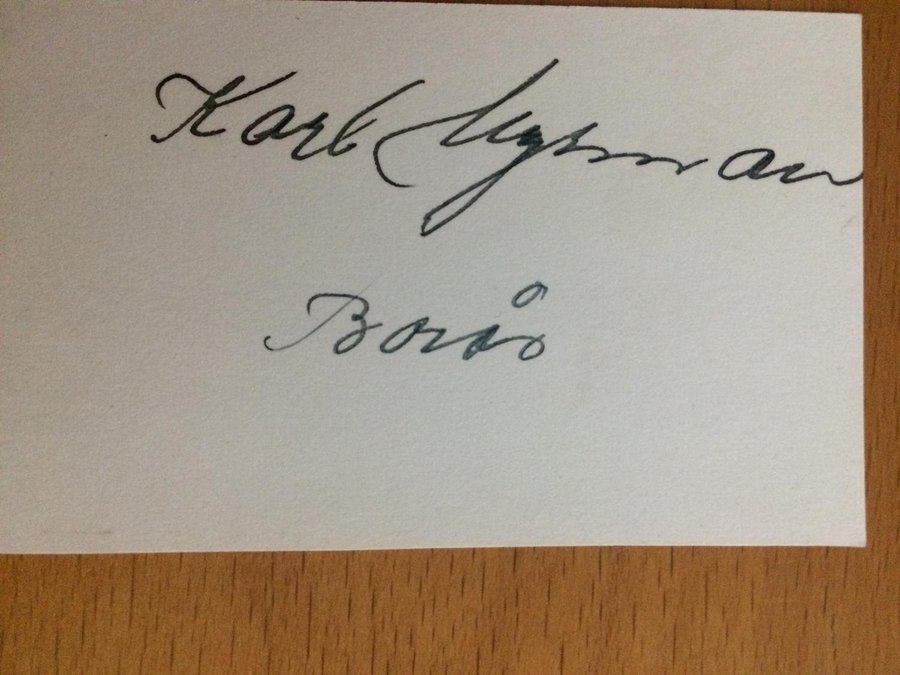 Karl Nyman
Borås